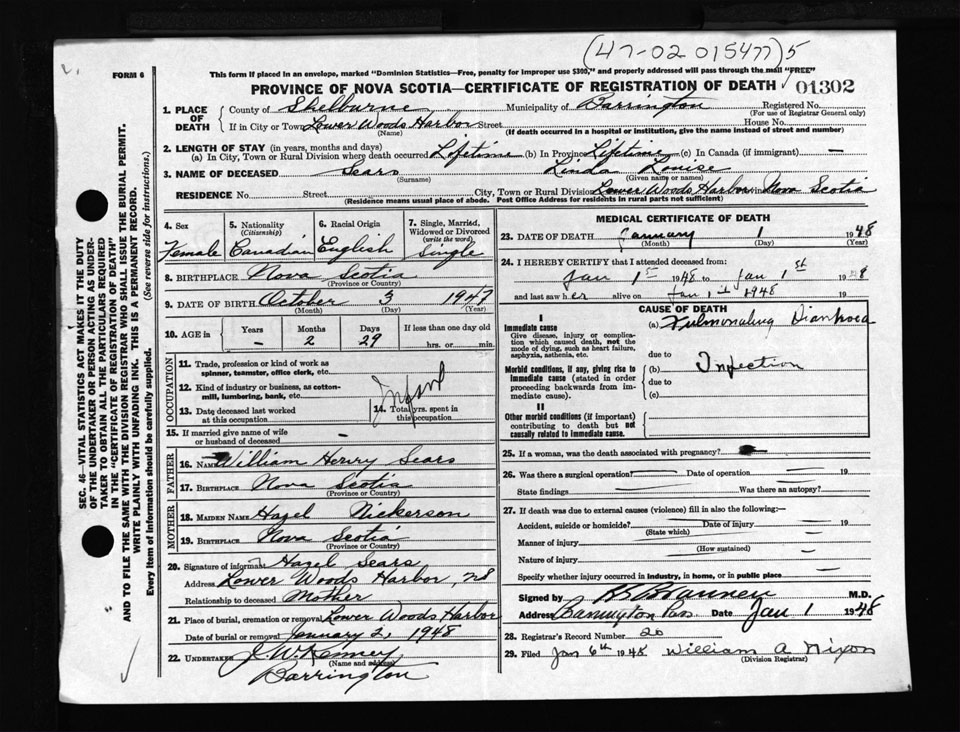 (47-02 015477) 5
FORM 6
This form if placed in an envelope, marked "Dominion Statistics—Free, penalty for improper use $300," and properly addressed will pass through the mail "FREE"
PROVINCE OF NOVA SCOTIA—CERTIFICATE OF REGISTRATION OF DEATH 01302
1. PLACE OF DEATH
County of Shelburne Municipality of Barrington Registered No.
(For use of Registrar General only)
If in City or Town Lower Woods Harbor Street House No.
(Name) (If death occurred in a hospital or institution, give the name instead of street and number)
2. LENGTH OF STAY (in years, months and days)
(a) In City, Town or Rural Division where death occurred Lifetime (b) In Province Lifetime (c) In Canada (if immigrant) —
3. NAME OF DECEASED Sears Linda Louise
(Surname) (Given name or names)
RESIDENCE No. Street City, Town or Rural Division Lower Woods Harbor in Nova Scotia
(Residence means usual place of abode. Post Office Address for residents in rural parts not sufficient)
4. Sex 5. Nationality (Citizenship) 6. Racial Origin 7. Single, Married, Widowed or Divorced (write the word)
Female Canadian English Single
8. BIRTHPLACE Nova Scotia
(Province or Country)
9. DATE OF BIRTH October 3 1947
(Month) (Day) (Year)
10. AGE in Years Months Days If less than one day old
— 2 29 hrs. or min.
OCCUPATION
11. Trade, profession or kind of work as spinner, teamster, office clerk, etc.
12. Kind of industry or business, as cotton-mill, lumbering, bank, etc.
Infant
13. Date deceased last worked at this occupation
14. Total yrs. spent in this occupation
15. If married give name of wife or husband of deceased —
FATHER
16. Name William Henry Sears
17. BIRTHPLACE Nova Scotia
(Province or Country)
MOTHER
18. MAIDEN NAME Hazel Nickerson
19. BIRTHPLACE Nova Scotia
(Province or Country)
20. Signature of informant Hazel Sears
Address Lower Woods Harbor, NS
Relationship to deceased Mother
21. Place of burial, cremation or removal Lower Woods Harbor
Date of burial or removal January 2, 1948
22. UNDERTAKER J. W. Kenney
(Name and address)
Barrington
MEDICAL CERTIFICATE OF DEATH
23. DATE OF DEATH January 1 1948
(Month) (Day) (Year)
24. I HEREBY CERTIFY that I attended deceased from:
Jan 1st 1948 to Jan 1st 1948
and last saw her alive on Jan 1st 1948 19
CAUSE OF DEATH
I
Immediate cause
Give disease, injury or complication which caused death, not the mode of dying, such as heart failure, asphyxia, asthenia, etc.
(a) Diarrhoea
due to
Morbid conditions, if any, giving rise to immediate cause (stated in order proceeding backwards from immediate cause).
(b) Infection
due to
(c)
II
Other morbid conditions (if important) contributing to death but not causally related to immediate cause.
25. If a woman, was the death associated with pregnancy?
26. Was there a surgical operation? Date of operation 19
State findings Was there an autopsy?
27. If death was due to external causes (violence) fill in also the following:—
Accident, suicide or homicide? Date of injury 19
(State which)
Manner of injury
(How sustained)
Nature of injury
Specify whether injury occurred in industry, in home, or in public place
Signed by M.D.
Address Barrington Pas Date Jan 1 1948
28. Registrar's Record Number 20
29. Filed Jan 6th 1948 William A Nixon
(Division Registrar)
SEC. 46—VITAL STATISTICS ACT MAKES IT THE DUTY
OF THE UNDERTAKER OR PERSON ACTING AS UNDER-
TAKER TO OBTAIN ALL THE PARTICULARS REQUIRED
IN THE "CERTIFICATE OF REGISTRATION OF DEATH"
AND TO FILE THE SAME WITH THE DIVISION REGISTRAR WHO SHALL ISSUE THE BURIAL PERMIT.
WRITE PLAINLY WITH UNFADING INK. THIS IS A PERMANENT RECORD.
Every item of information should be carefully supplied. (See reverse side for instructions.)